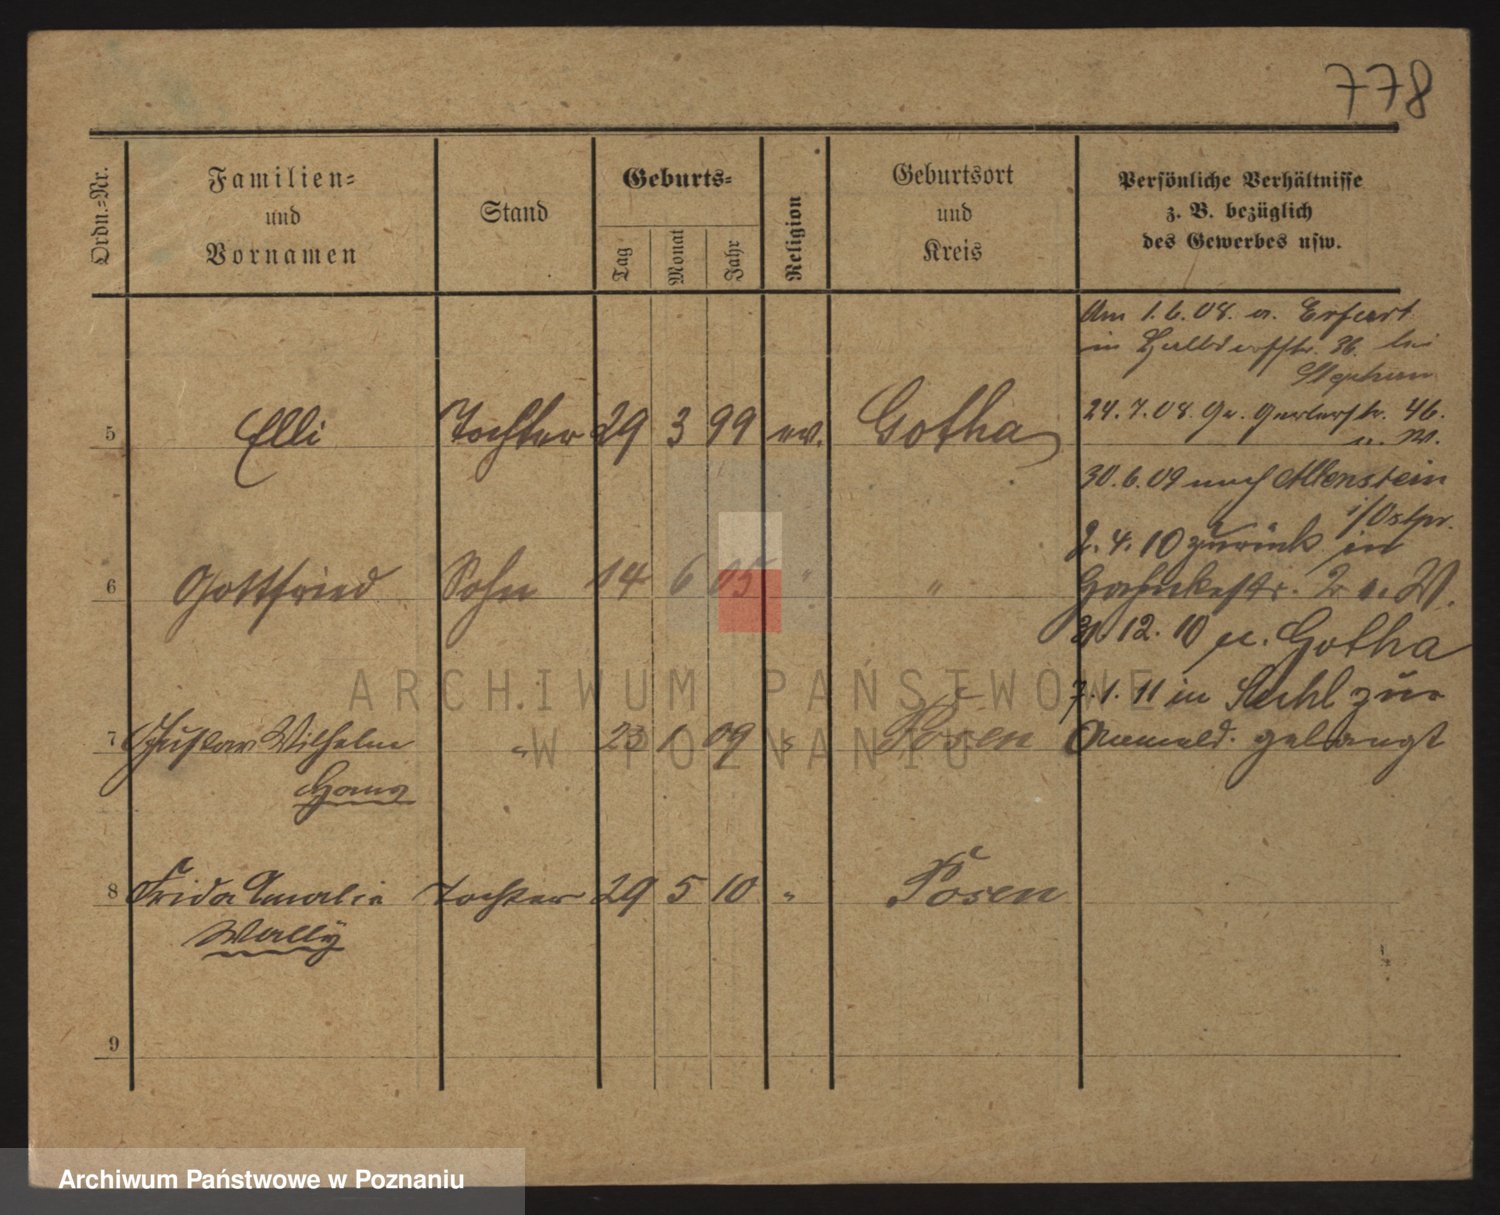 778
Ordn.-Nr.
Familien-
und
Vornamen
Stand
Geburts-
Tag
Monat
Jahr
Religion
Geburtsort
und
Kreis
Persönliche Verhältnisse
z. B. bezüglich
des Gewerbes usw.
Am 1.6.08. a. Erfurt
in 36. bei
Stephan
5 Elli Tochter 29 3 99 ev. Gotha
24.7.08. 46.
u. W.
30.6.09 nach Allenstein
i/Ostpr.
2.4.10 zurück in
6 Gottfried Sohn 14 6 05 " "
2 u. W.
31.12.10 n. Gotha
7.1.11 in Suhl zur
7 Gustav Wilhelm " 23 1 09 " Posen
Anmeld. gelangt
Hans
8 Frida Amalie Tochter 29 5 10 " Posen
Wally
9
ARCHIWUM PAŃSTWOWE
W POZNANIU
Archiwum Państwowe w Poznaniu